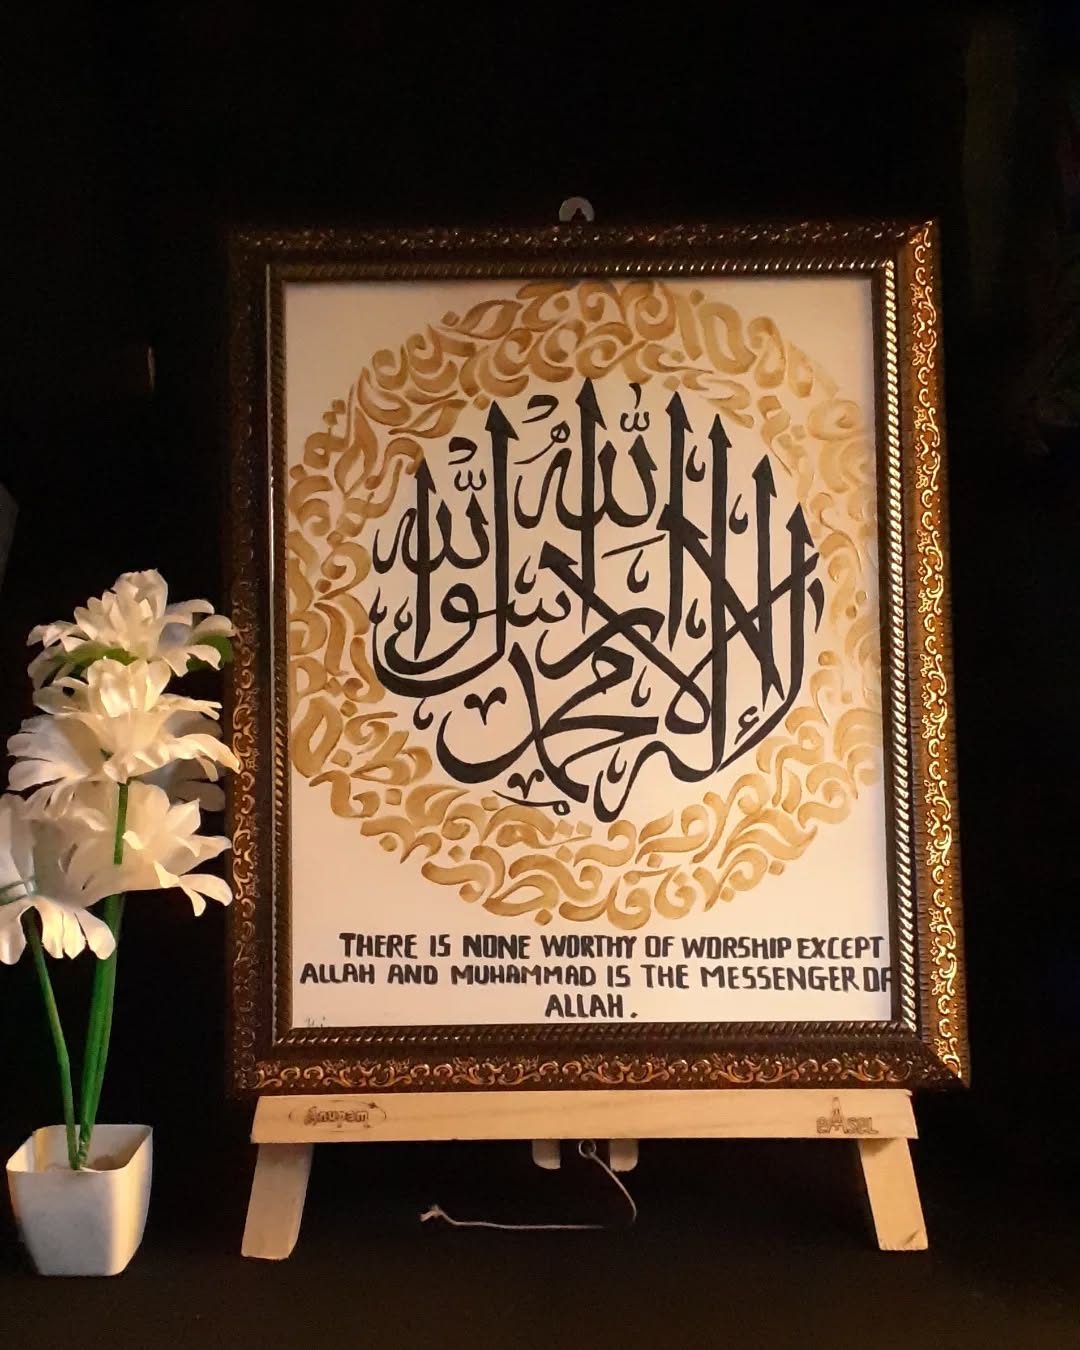 لا إله إلا الله محمد رسول الله
THERE IS NONE WORTHY OF WORSHIP EXCEPT
ALLAH AND MUHAMMAD IS THE MESSENGER OF
ALLAH.
Anupam
eAsel